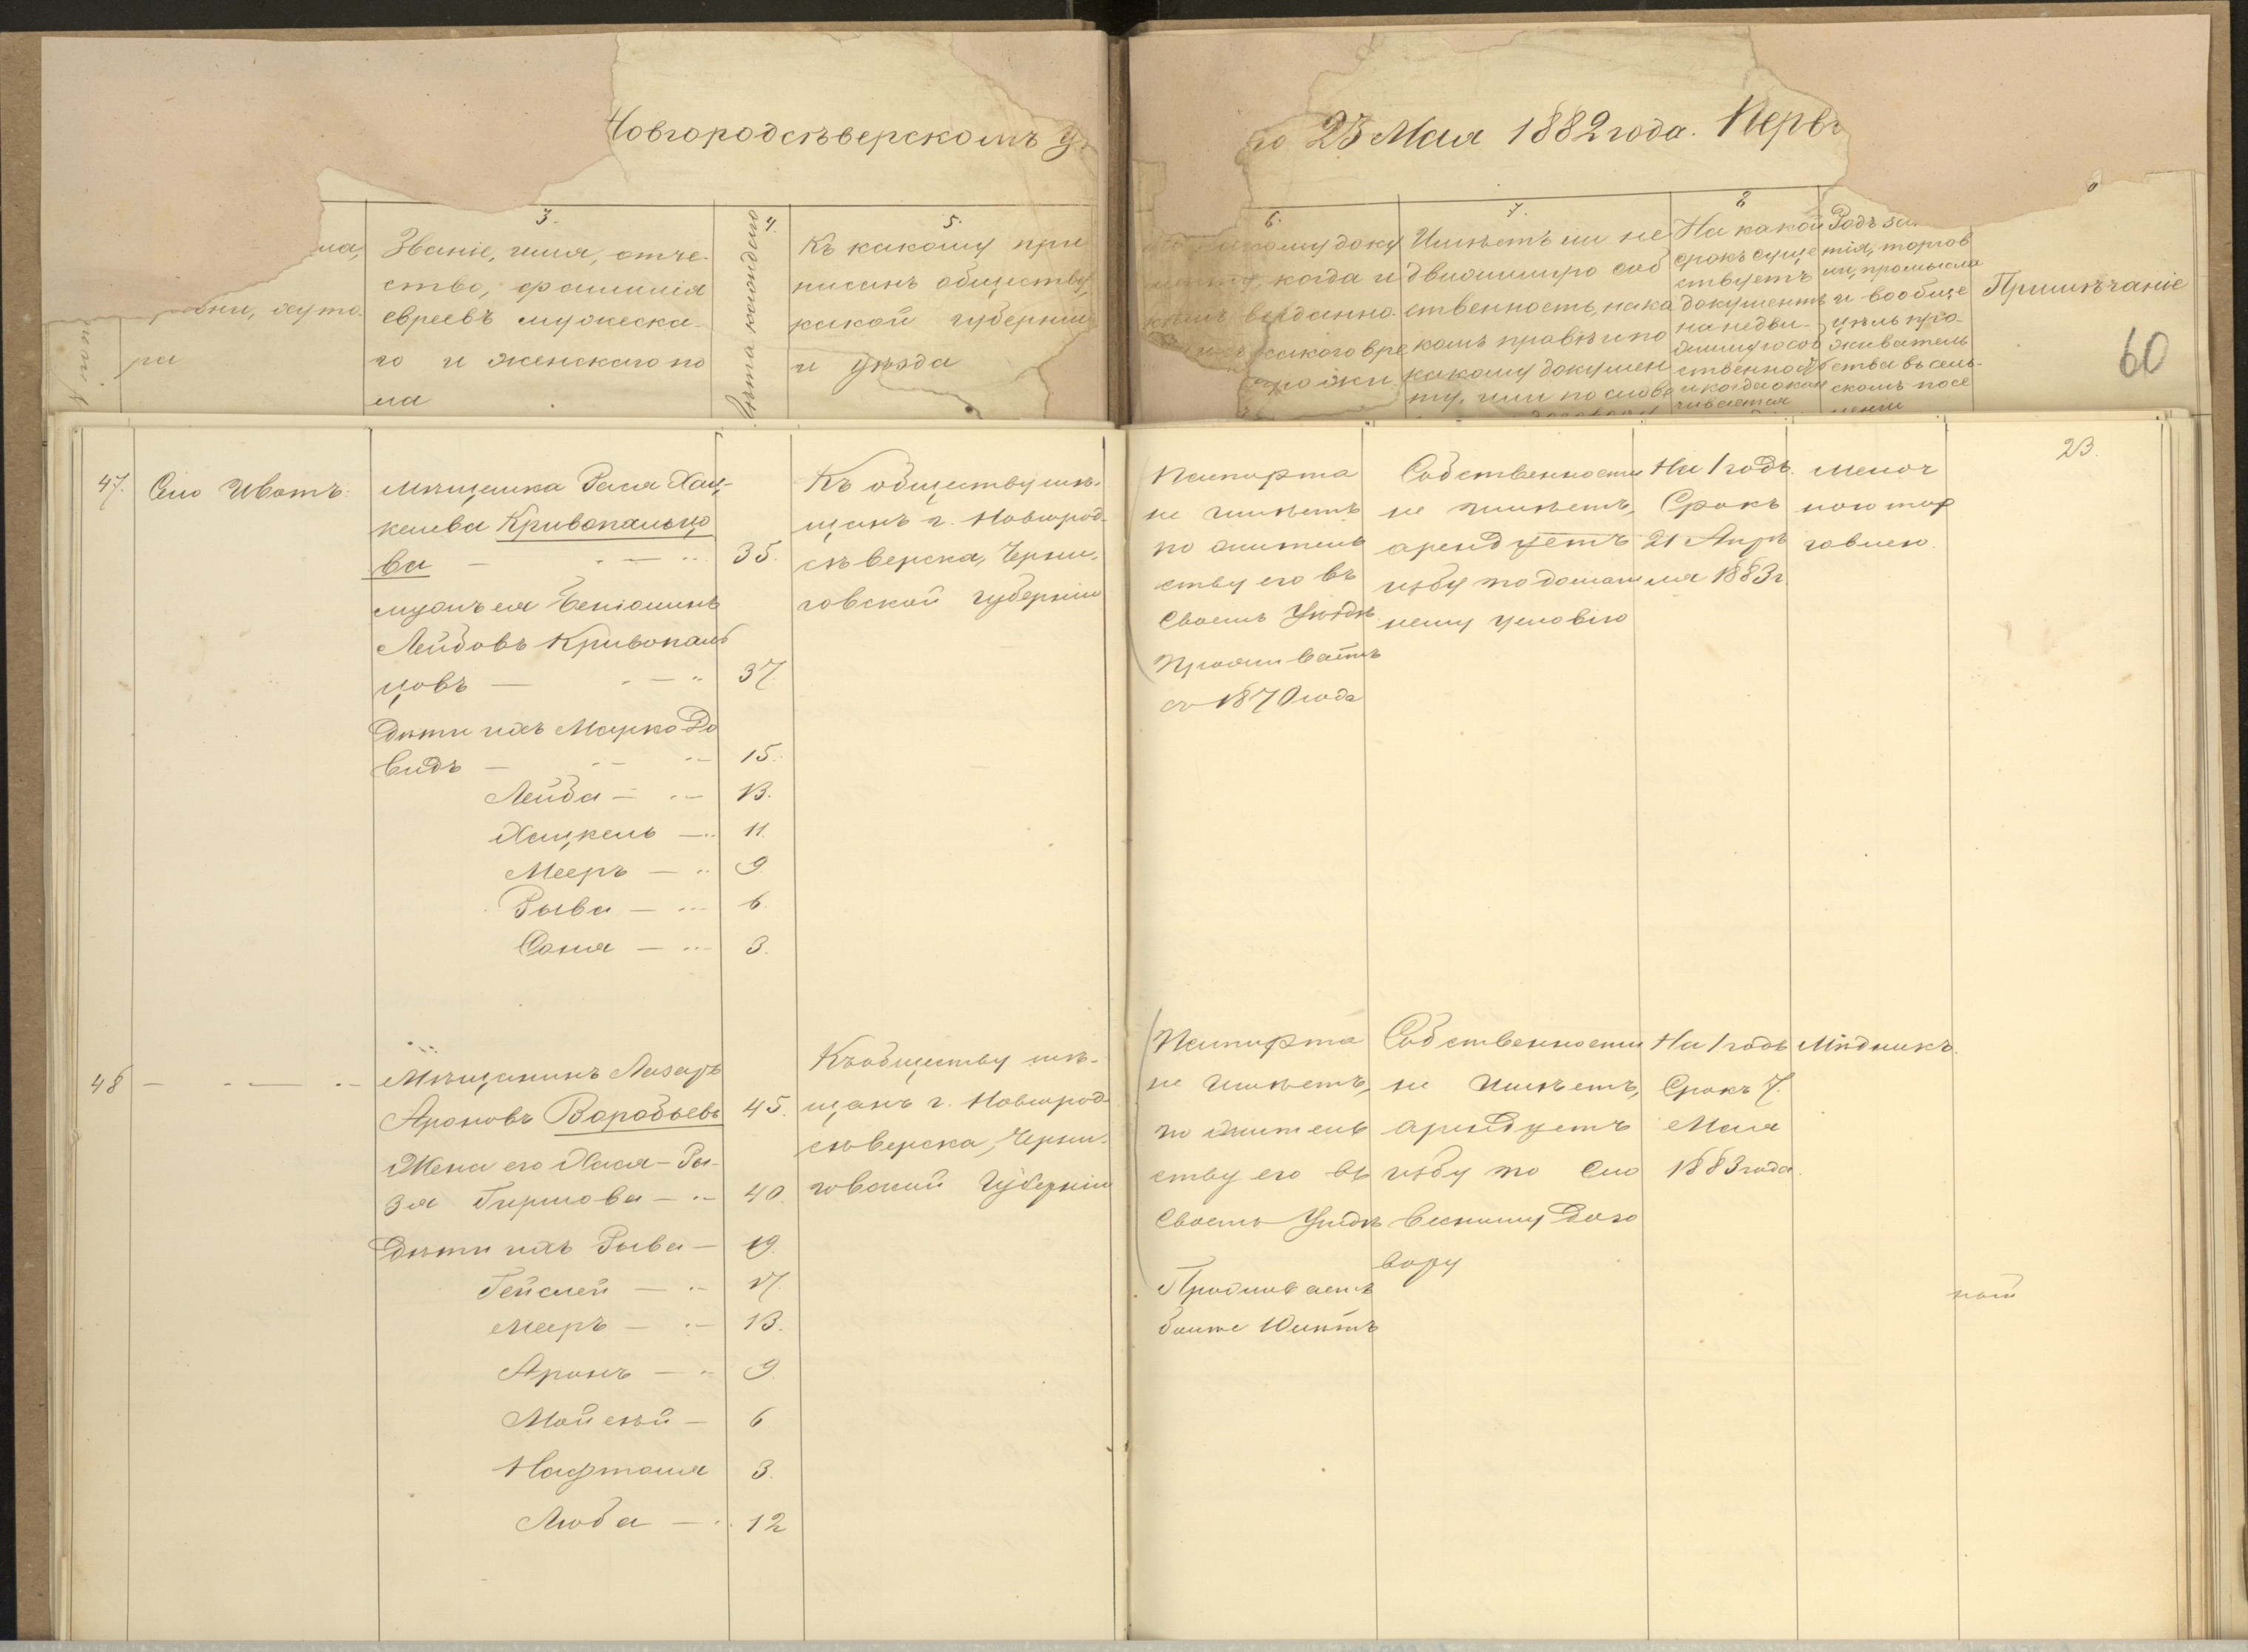 Новгородсѣверскомъ у
го 23 Мая 1882 года. Перв
3.
Званіе, имя, отче-
ство, фамилія
евреевъ мужеска-
го и женскаго по
ла
4.
Лѣта каждаго
5.
Къ какому при
писанъ обществу,
какой губерніи
и уѣзда
ра
6.
7.
Имѣетъ ли не
движимую соб
ственность, на ка
комъ правѣ и по
какому докумен
ту, или по слове
8
На какой
срокъ суще
ствуетъ
документъ
на недви-
жимую соб
ственность
и когда окан
чивается
Родъ за
тія, торгов
ли, промысла
и вообще
цѣль про-
живатель
ства въ сель-
скомъ посе
леніи
Примѣчаніе
60
23.
47.
Село Ивотъ.
Мѣщанка Рася Хац-
келева Кривопальцо
ва 35.
мужъ ея Беніоминъ
Лейбовъ Кривопаль
цовъ 37.
Дѣти ихъ Марко До
видъ 15.
Лейба 13.
Хацкель 11.
Мееръ 9.
Рыва 6.
Соня 3.
Къ обществу мѣ-
щанъ г. Новгород-
сѣверска, Черни-
говской губерніи
Паспорта
не имѣетъ
по жительству
ству его въ
своемъ Уѣздѣ
Проживаетъ
съ 1870 года
Собственности
не имѣетъ,
арендуетъ
избу по домаш
нему условію
На 1 годъ.
Срокъ
21 Апрѣ
ля 1883 г.
мелоч
ною тор
говлею.
48
Мѣщанинъ Лазарь
Ароновъ Воробьевъ 45.
Жена его Хася-Ры-
зя Гиршова 40.
Дѣти ихъ Рыва 19.
Гейслей 17.
Мееръ 13.
Аронъ 9.
Мойсѣй 6
Нафтоля 3.
Люба 12
Къ обществу мѣ-
щанъ г. Новгород-
сѣверска, Черни-
говской Губерніи
Паспорта
не имѣетъ,
по житель
ству его въ
своемъ Уѣздѣ
Проживаетъ
болѣе 10 лѣтъ
Собственности
не имѣетъ,
арендуетъ
избу по сло
весному дого
вору
На 1 годъ
Срокъ 7.
Мая
1883 года.
Мѣдникъ.